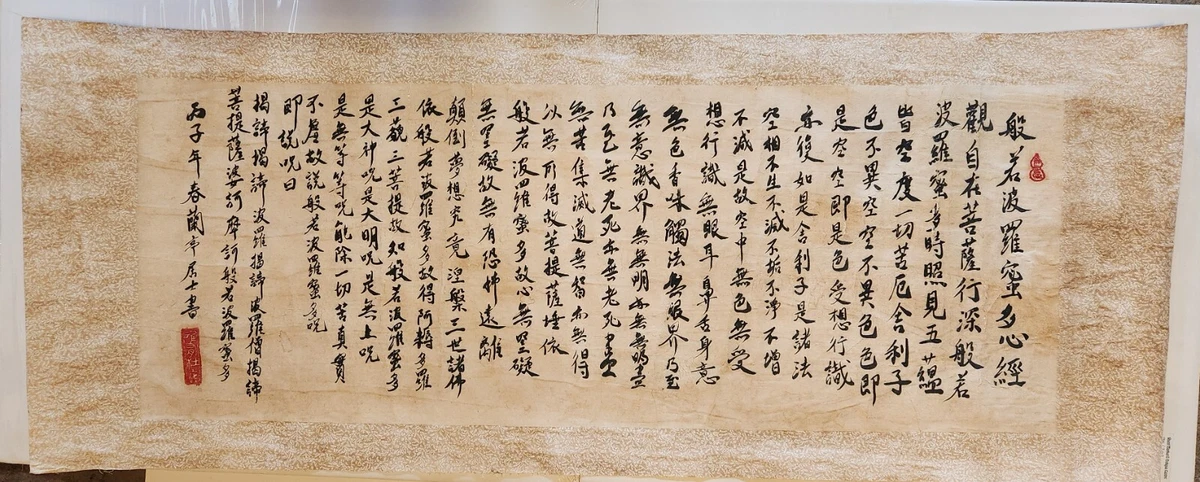 般若波羅蜜多心經
觀自在菩薩行深般若
波羅蜜多時照見五蘊
皆空度一切苦厄舍利子
色不異空空不異色色即
是空空即是色受想行識
亦復如是舍利子是諸法
空相不生不滅不垢不淨不增
不減是故空中無色無受
想行識無眼耳鼻舌身意
無色香味觸法無眼界乃至
無意識界無無明亦無無明盡
乃至無老死亦無老死盡
無苦集滅道無智亦無得
以無所得故菩提薩埵依
般若波羅蜜多故心無罣礙
無罣礙故無有恐怖遠離
顛倒夢想究竟涅槃三世諸佛
依般若波羅蜜多故得阿耨多羅
三藐三菩提故知般若波羅蜜多
是大神咒是大明咒是無上咒
是無等等咒能除一切苦真實
不虛故說般若波羅蜜多咒
即說咒曰
揭諦揭諦波羅揭諦波羅僧揭諦
菩提薩婆訶摩訶般若波羅蜜多
丙子年春蘭亭居士書